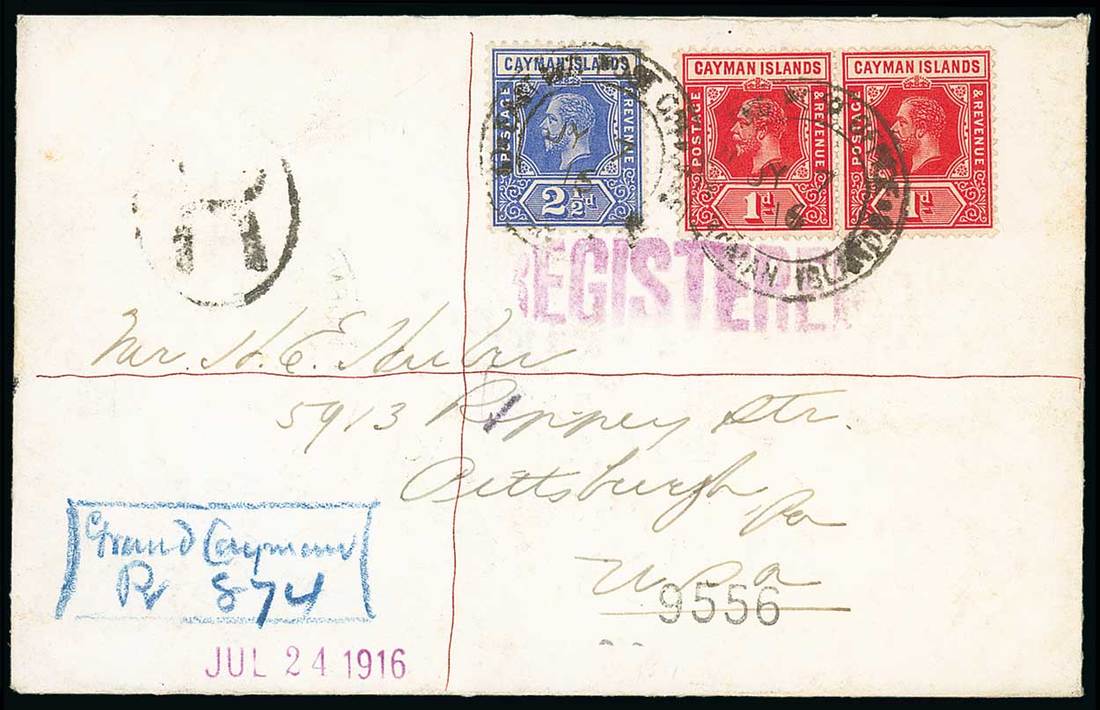 CAYMAN ISLANDS
POSTAGE & REVENUE
2½d
CAYMAN ISLANDS
POSTAGE & REVENUE
1d
CAYMAN ISLANDS
POSTAGE & REVENUE
1d
CAYMAN ISLANDS
JY 7
16
R
REGISTERED
Mr. H. E. Huber
5913 Rippey Str.
Pittsburgh
Pa
U S a
9556
Grand Cayman
R 874
JUL 24 1916